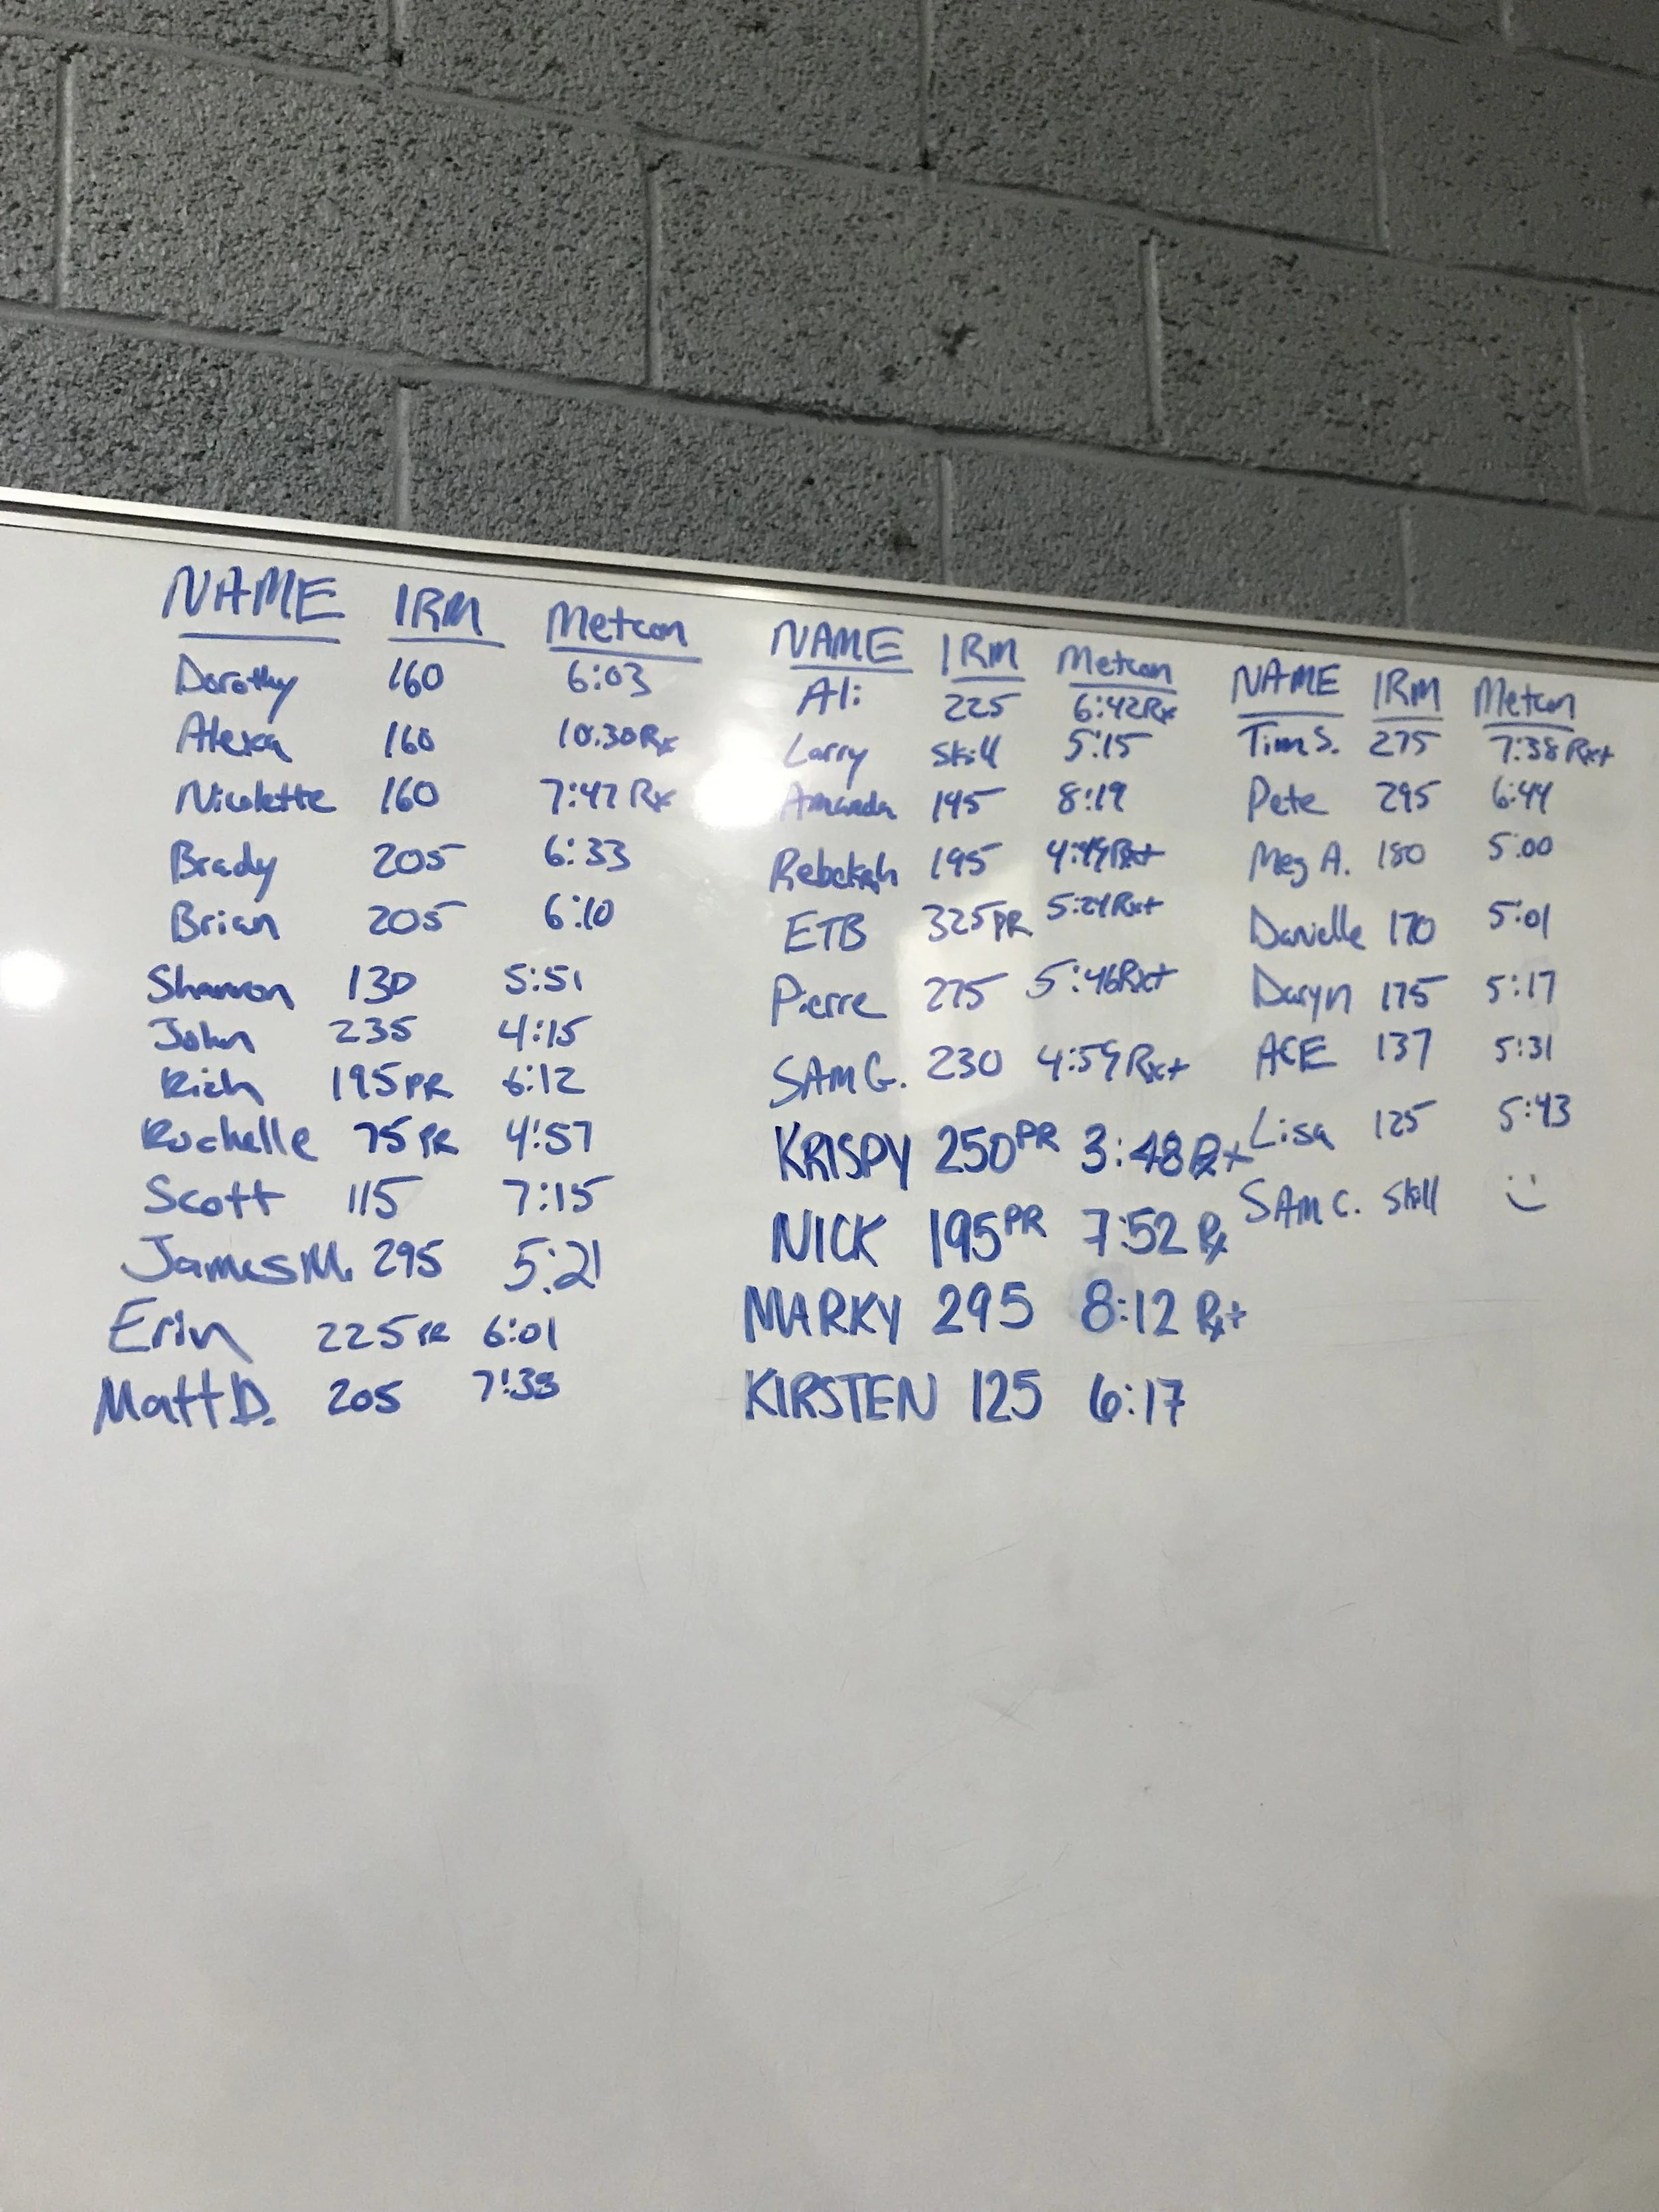 NAME 1RM Metcon
Dorothy 160 6:03
Alexa 160 10:30 Rx
Nicolette 160 7:47 Rx
Brady 205 6:33
Brian 205 6:10
Shannon 130 5:51
John 235 4:15
Rich 195 PR 6:12
Rochelle 75 PR 4:57
Scott 115 7:15
James M. 295 5:21
Erin 225 PR 6:01
Matt D. 205
NAME 1RM Metcon
Ali 225 6:42 Rx
Larry Skill 5:15
Amanda 8:19
Rebekah 195 Rx+
ETB 325 PR Rx+
Pierre 275 5:46 Rx+
SAM G. 230 4:59 Rx+
KRISPY 250 PR 3:48 Rx+
NICK 195 PR 7:52 Rx
MARKY 295 8:12 Rx+
KIRSTEN 125 6:17
NAME 1RM Metcon
Tim S. 275 7:38 Rx+
Pete 295 6:44
Meg A. 180 5:00
Danielle 170 5:01
Daryn 175 5:17
ACE 137 5:31
Lisa 125 5:43
SAM C. Skill